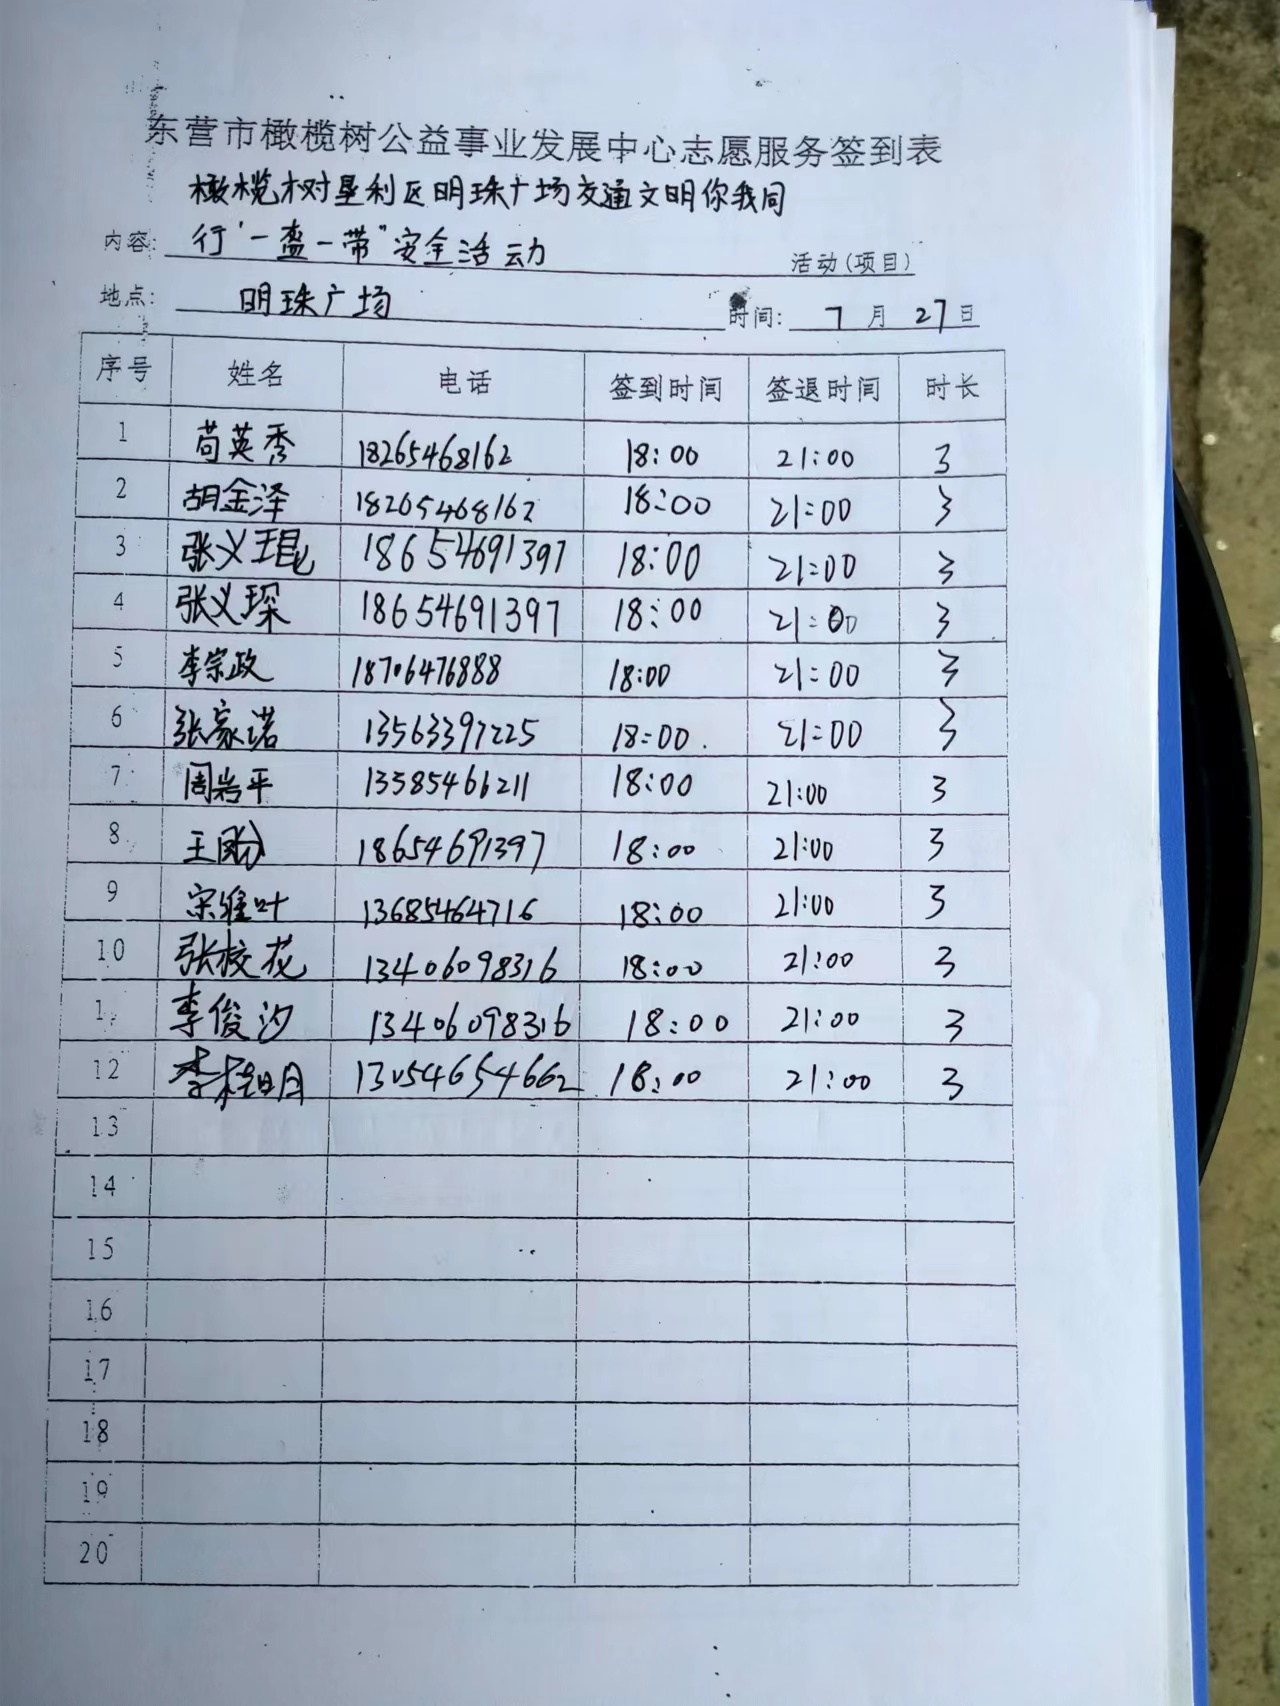 东营市橄榄树公益事业发展中心志愿服务签到表
橄榄树垦利区明珠广场交通文明你我同
内容: 行"一盔一带"安全活动 活动(项目)
地点: 明珠广场 时间: 7 月 27 日
序号 姓名 电话 签到时间 签退时间 时长
1 苟英秀 18265468162 18:00 21:00 3
2 胡金泽 18265468162 18:00 21:00 3
3 张义琨 18654691397 18:00 21:00 3
4 张义琛 18654691397 18:00 21:00 3
5 李宗政 18706476888 18:00 21:00 3
6 张家诺 13563397225 18:00 21:00 3
7 周岩平 13585466211 18:00 21:00 3
8 王 18654691397 18:00 21:00 3
9 宋维叶 13685464716 18:00 21:00 3
10 张校花 13406098316 18:00 21:00 3
1 李俊汐 13406098316 18:00 21:00 3
12 李桂明 18:00 21:00 3
13
14
15
16
17
18
19
20